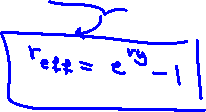 r_eff = e^ry - 1